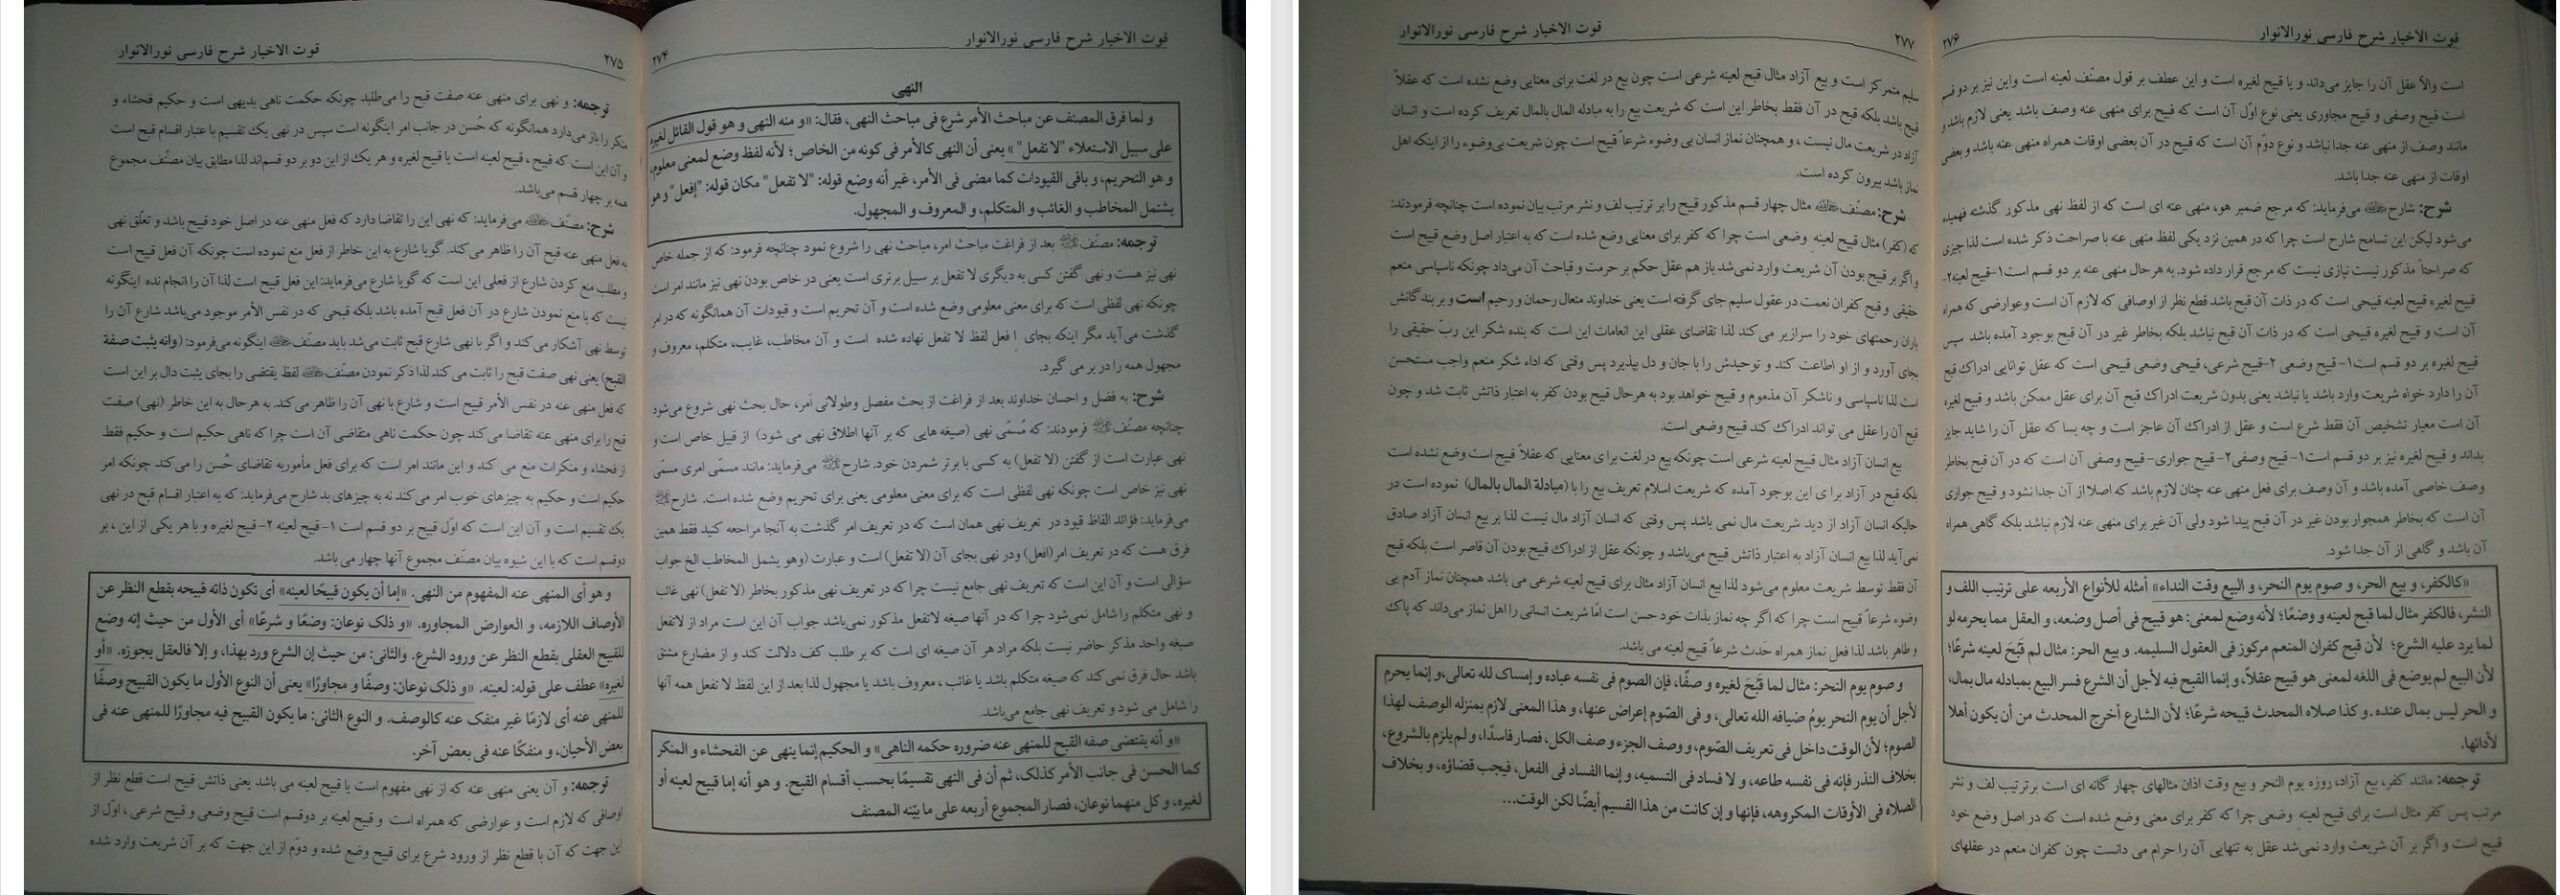 قوت الاخیار شرح فارسی نورالانوار
۲۷۴
النهی
و لما فرق المصنف عن مباحث الأمر شرع فی مباحث النهی، فقال: «و منه النهی و هو قول القائل لغیره
علی سبیل الاستعلاء "لا تفعل"» یعنی أن النهی کالأمر فی کونه من الخاص؛ لأنه لفظ وضع لمعنی معلوم،
و هو التحریم، و باقی القیودات کما مضی فی الأمر، غیر أنه وضع قوله: "لا تفعل" مکان قوله: "إفعل" و هو
یشتمل المخاطب و الغائب و المتکلم، و المعروف و المجهول.
ترجمه: مصنّف بعد از فراغت مباحث امر، مباحث نهی را شروع نمود چنانچه فرمود: که از جمله خاص
نهی نیز هست و نهی گفتن کسی به دیگری لا تفعل بر سبیل برتری است یعنی در خاص بودن نهی نیز مانند امر است
چونکه نهی لفظی است که برای معنی معلومی وضع شده است و آن تحریم است و قیودات آن همانگونه که در امر
گذشت می‌آید مگر اینکه بجای إفعل لفظ لا تفعل نهاده شده است و آن مخاطب، غایب، متکلم، معروف و
مجهول همه را در بر می گیرد.
شرح: به فضل و احسان خداوند بعد از فراغت از بحث مفصل وطولانی اَمر، حال بحث نهی شروع می‌شود
چنانچه مصنّف فرمودند: که مُسمّی نهی (صیغه هایی که بر آنها اطلاق نهی می شود) از قبیل خاص است و
نهی عبارت است از گفتن (لا تفعل) به کسی با برتر شمردن خود. شارح می‌فرماید: مانند مسمّی امری مسمّی
نهی نیز خاص است چونکه نهی لفظی است که برای معنی معلومی یعنی برای تحریم وضع شده است. شارح
می‌فرماید: فوائد الفاظ قیود در تعریف نهی همان است که در تعریف امر گذشت به آنجا مراجعه کنید فقط همین
فرق هست که در تعریف امر (افعل) ودر نهی بجای آن (لا تفعل) است و عبارت (وهو یشمل المخاطب الخ جواب
سؤالی است و آن این است که تعریف نهی جامع نیست چرا که در تعریف نهی مذکور بخاطر (لا تفعل) نهی غائب
و نهی متکلم را شامل نمی‌شود چرا که در آنها صیغه لاتفعل مذکور نمی‌باشد جواب آن این است مراد از لاتفعل
صیغه واحد مذکر حاضر نیست بلکه مراد هر آن صیغه ای است که بر طلب کف دلالت کند و از مضارع مشتق
باشد حال فرق نمی‌کند که صیغه متکلم باشد یا غائب ، معروف باشد یا مجهول لذا بعد از این لفظ لا تفعل همه آنها
را شامل می شود و تعریف نهی جامع می‌باشد.
«و أنه یقتضی صفه القبح للمنهی عنه ضروره حکمه الناهی» و الحکیم إنما ینهی عن الفحشاء و المنکر
کما الحسن فی جانب الأمر کذلک، ثم أن فی النهی تقسیمًا بحسب أقسام القبح. و هو أنه إما قبیح لعینه أو
لغیره، و کل منهما نوعان، فصار المجموع أربعه علی ما بیّنه المصنف
قوت الاخیار شرح فارسی نورالانوار
۲۷۵
ترجمه: و نهی برای منهی عنه صفت قبح را می‌طلبد چونکه حکمت ناهی بدیهی است و حکیم فحشاء و
منکر را باز می‌دارد همانگونه که حُسن در جانب امر اینگونه است سپس در نهی یک تقسیم با عتبار اقسام قبح است
و آن این است که قبیح ، قبیح لعینه است یا قبیح لغیره و هر یک از این دو بر دو قسم‌اند لذا مطابق بیان مصنّف مجموع
همه بر چهار قسم می‌باشد.
شرح: مصنّف می‌فرماید: که نهی این را تقاضا دارد که فعل منهی عنه در اصل خود قبیح باشد و تعلّق نهی
به فعل منهی عنه قبح آن را ظاهر می‌کند. گویا شارع به این خاطر از فعل منع نموده است چونکه آن فعل قبیح است
و مطلب منع کردن شارع از فعلی این است که گویا شارع می‌فرماید: این فعل قبیح است لذا آن را انجام نده اینگونه
نیست که با منع نمودن شارع در آن فعل قبح آمده باشد بلکه قبحی که در نفس الأمر موجود می‌باشد شارع آن را
توسط نهی آشکار می‌کند و اگر با نهی شارع قبح ثابت می‌شد باید مصنّف اینگونه می‌فرمود: (وانه یثبت صفة
القبح) یعنی نهی صفت قبح را ثابت می کند لذا ذکر نمودن مصنّف لفظ یقتضی را بجای یثبت دال بر این است
که فعل منهی عنه در نفس الأمر قبیح است و شارع با نهی آن را ظاهر می‌کند. به هرحال به این خاطر (نهی) صفت
قبح را برای منهی عنه تقاضا می کند چون حکمت ناهی متقاضی آن است چرا که ناهی حکیم است و حکیم فقط
از فحشاء و منکرات منع می کند و این مانند امر است که برای فعل مأموربه تقاضای حُسن را می‌کند چونکه امر
حکیم است و حکیم به چیزهای خوب امر می‌کند نه به چیزهای بد شارح می‌فرماید: که به اعتبار اقسام قبح در نهی
یک تقسیم است و آن این است که اوّل قبیح بر دو قسم است ۱-قبیح لعینه ۲-قبیح لغیره و با هر یکی از این ، بر
دوقسم است که با این شیوه بیان مصنّف مجموع آنها چهار می باشد.
و هو أی المنهی عنه المفهوم من النهی. «إما أن یکون قبیحًا لعینه» أی تکون ذاته قبیحه بقطع النظر عن
الأوصاف اللازمه، و العوارض المجاوره. «و ذلک نوعان: وضعًا و شرعًا» أی الأول من حیث إنه وضع
للقبیح العقلی بقطع النظر عن ورود الشرع. والثانی: من حیث إن الشرع ورد بهذا، و إلا فالعقل یجوزه. «أو
لغیره» عطف علی قوله: لعینه. «و ذلک نوعان: وصفًا و مجاورًا» یعنی أن النوع الأول ما یکون القبیح وصفًا
للمنهی عنه أی لازمًا غیر منفک عنه کالوصف. و النوع الثانی: ما یکون القبیح فیه مجاورًا للمنهی عنه فی
بعض الأحیان، و منفکًا عنه فی بعض آخر.
ترجمه: و آن یعنی منهی عنه که از نهی مفهوم است یا قبیح لعینه می باشد یعنی ذاتش قبیح است قطع نظر از
اوصافی که لازم است و عوارضی که همراه است و قبیح لعینه بر دوقسم است قبیح وضعی و قبیح شرعی ، اوّل از
این جهت که آن با قطع نظر از ورود شرع برای قبیح وضع شده و دوّم از این جهت که بر آن شریعت وارد شده
قوت الاخیار شرح فارسی نورالانوار
۲۷۶
است والاّ عقل آن را جایز می‌داند و یا قبیح لغیره است و این عطف بر قول مصنّف لعینه است واین نیز بر دو قسم
است قبیح وصفی و قبیح مجاوری یعنی نوع اوّل آن است که قبیح برای منهی عنه وصف باشد یعنی لازم باشد و
مانند وصف از منهی عنه جدا نباشد و نوع دوّم آن است که قبیح در آن بعضی اوقات همراه منهی عنه باشد و بعضی
اوقات از منهی عنه جدا باشد.
شرح: شارح می‌فرماید: که مرجع ضمیر هو، منهی عنه ای است که از لفظ نهی مذکور گذشته فهمیده
می‌شود لیکن این تسامح شارح است چرا که در همین نزد یکی لفظ منهی عنه با صراحت ذکر شده است لذا چیزی
که صراحتاً مذکور نیست نیازی نیست که مرجع قرار داده شود. به هرحال منهی عنه بر دو قسم است۱-قبیح لعینه۲-
قبیح لغیره قبیح لعینه قبیحی است که در ذات آن قبح باشد قطع نظر از اوصافی که لازم آن است وعوارضی که همراه
آن است و قبیح لغیره قبیحی است که در ذات آن قبح نباشد بلکه بخاطر غیر در آن قبح بوجود آمده باشد سپس
قبیح لغیره بر دو قسم است۱-قبیح وضعی ۲-قبیح شرعی، قبیحی وضعی قبیحی است که عقل توانایی ادراک قبح
آن را دارد خواه شریعت وارد باشد یا نباشد یعنی بدون شریعت ادراک قبح آن برای عقل ممکن باشد و قبیح لغیره
آن است معیار تشخیص آن فقط شرع است و عقل از ادراک آن عاجز است و چه بسا که عقل آن را شاید جایز
بداند و قبیح لغیره نیز بر دو قسم است۱-قبیح وصفی۲-قبیح جواری-قبیح وصفی آن است که در آن قبح بخاطر
وصف خاصی آمده باشد و آن وصف برای فعل منهی عنه چنان لازم باشد که اصلا از آن جدا نشود و قبیح جواری
آن است که بخاطر همجوار بودن غیر در آن قبح پیدا شود ولی آن غیر برای منهی عنه لازم نباشد بلکه گاهی همراه
آن باشد و گاهی از آن جدا شود.
«کالکفر، و بیع الحر، و صوم یوم النحر، و البیع وقت النداء» أمثله للأنواع الأربعه علی ترتیب اللف و
النشر، فالکفر مثال لما قبح لعینه و وضعًا؛ لأنه وضع لمعنی: هو قبیح فی أصل وضعه، و العقل مما یحرمه لو
لما یرد علیه الشرع؛ لأن قبح کفران المنعم مرکوز فی العقول السلیمه. و بیع الحر: مثال لم قبّحَ لعینه شرعًا؛
لأن البیع لم یوضع فی اللغه لمعنی هو قبیح عقلاً، و إنما القبح فیه لأجل أن الشرع فسر البیع بمبادله مال بمال،
و الحر لیس بمال عنده. و کذا صلاه المحدث قبیحه شرعًا؛ لأن الشارع أخرج المحدث من أن یکون أهلا
لأدائها.
ترجمه: مانند کفر، بیع آزاد، روزه یوم النحر و بیع وقت اذان مثالهای چهار گانه ای است برترتیب لف و نشر
مرتب پس کفر مثال است برای قبیح لعینه وضعی چرا که کفر برای معنی وضع شده است که در اصل وضع خود
قبیح است و اگر بر آن شریعت وارد نمی‌شد عقل به تنهایی آن را حرام می دانست چون کفران منعم در عقلهای
قوت الاخیار شرح فارسی نورالانوار
۲۷۷
سلیم متمرکز است و بیع آزاد مثال قبح لعینه شرعی است چون بیع در لغت برای معنایی وضع نشده است که عقلاً
قبیح باشد بلکه قبح در آن فقط بخاطر این است که شریعت بیع را به مبادله المال بالمال تعریف کرده است و انسان
آزاد در شریعت مال نیست ، و همچنان نماز انسان بی وضوء شرعاً قبیح است چون شریعت بی‌وضوء را از اینکه اهل
نماز باشد بیرون کرده است.
شرح: مصنّف مثال چهار قسم مذکور قبیح را بر ترتیب لف و نشر مرتب بیان نموده است چنانچه فرمودند:
که (کفر) مثال قبیح لعینه وضعی است چرا که کفر برای معنایی وضع شده است که به اعتبار اصل وضع قبیح است
و اگر بر قبیح بودن آن شریعت وارد نمی‌شد باز هم عقل حکم بر حرمت و قباحت آن می‌داد چونکه ناسپاسی منعم
حقیقی و قبح کفران نعمت در عقول سلیم جای گرفته است یعنی خداوند متعال رحمان و رحیم است و بر بندگانش
باران رحمتهای خود را سرازیر می کند لذا تقاضای عقلی این انعامات این است که بنده شکر این ربّ حقیقی را
بجای آورد و از او اطاعت کند و توحیدش را با جان و دل بپذیرد پس وقتی که اداء شکر منعم واجب مستحسن
است لذا ناسپاسی و ناشکر آن مذموم و قبیح خواهد بود به هرحال قبیح بودن کفر به اعتبار ذاتش ثابت شد و چون
قبح آن را عقل می تواند ادراک کند قبیح وضعی است.
بیع انسان آزاد مثال قبیح لعینه شرعی است چونکه بیع در لغت برای معنایی که عقلاً قبیح است وضع نشده است
بلکه قبح در آزاد برا ی این بوجود آمده که شریعت اسلام تعریف بیع را با (مبادلة المال بالمال) نموده است در
حالیکه انسان آزاد از دید شریعت مال نمی باشد پس وقتی که انسان آزاد مال نیست لذا بر بیع انسان آزاد صادق
نمی‌آید لذا بیع انسان آزاد به اعتبار ذاتش قبیح می‌باشد و چونکه عقل از ادراک قبیح بودن آن قاصر است بلکه قبح
آن فقط توسط شریعت معلوم می‌شود لذا بیع انسان آزاد مثال برای قبیح لعینه شرعی می باشد همچنان نماز آدم بی
وضوء شرعاً قبیح است چرا که اگر چه نماز بذات خود حسن است امّا شریعت انسانی را اهل نماز می‌داند که پاک
و طاهر باشد لذا فعل نماز همراه حَدث شرعاً قبیح لعینه می باشد.
و صوم یوم النحر: مثال لما قَبّحَ لغیره و صفًا، فإن الصوم فی نفسه عباده و إمساک لله تعالی، و إنما یحرم
لأجل أن یوم النحر یومُ ضیافه الله تعالی، و فی الصّوم إعراض عنها، و هذا المعنی لازم بمنزله الوصف لهذا
الصوم؛ لأن الوقت داخل فی تعریف الصّوم، و وصف الجزء وصف الکل، فصار فاسدًا، و لم یلزم بالشروع،
بخلاف النذر فإنه فی نفسه طاعه، و لا فساد فی التسمیه، و إنما الفساد فی الفعل، فیجب قضاؤه، و بخلاف
الصلاه فی الأوقات المکروهه، فإنها و إن کانت من هذا القسیم أیضًا لکن الوقت...